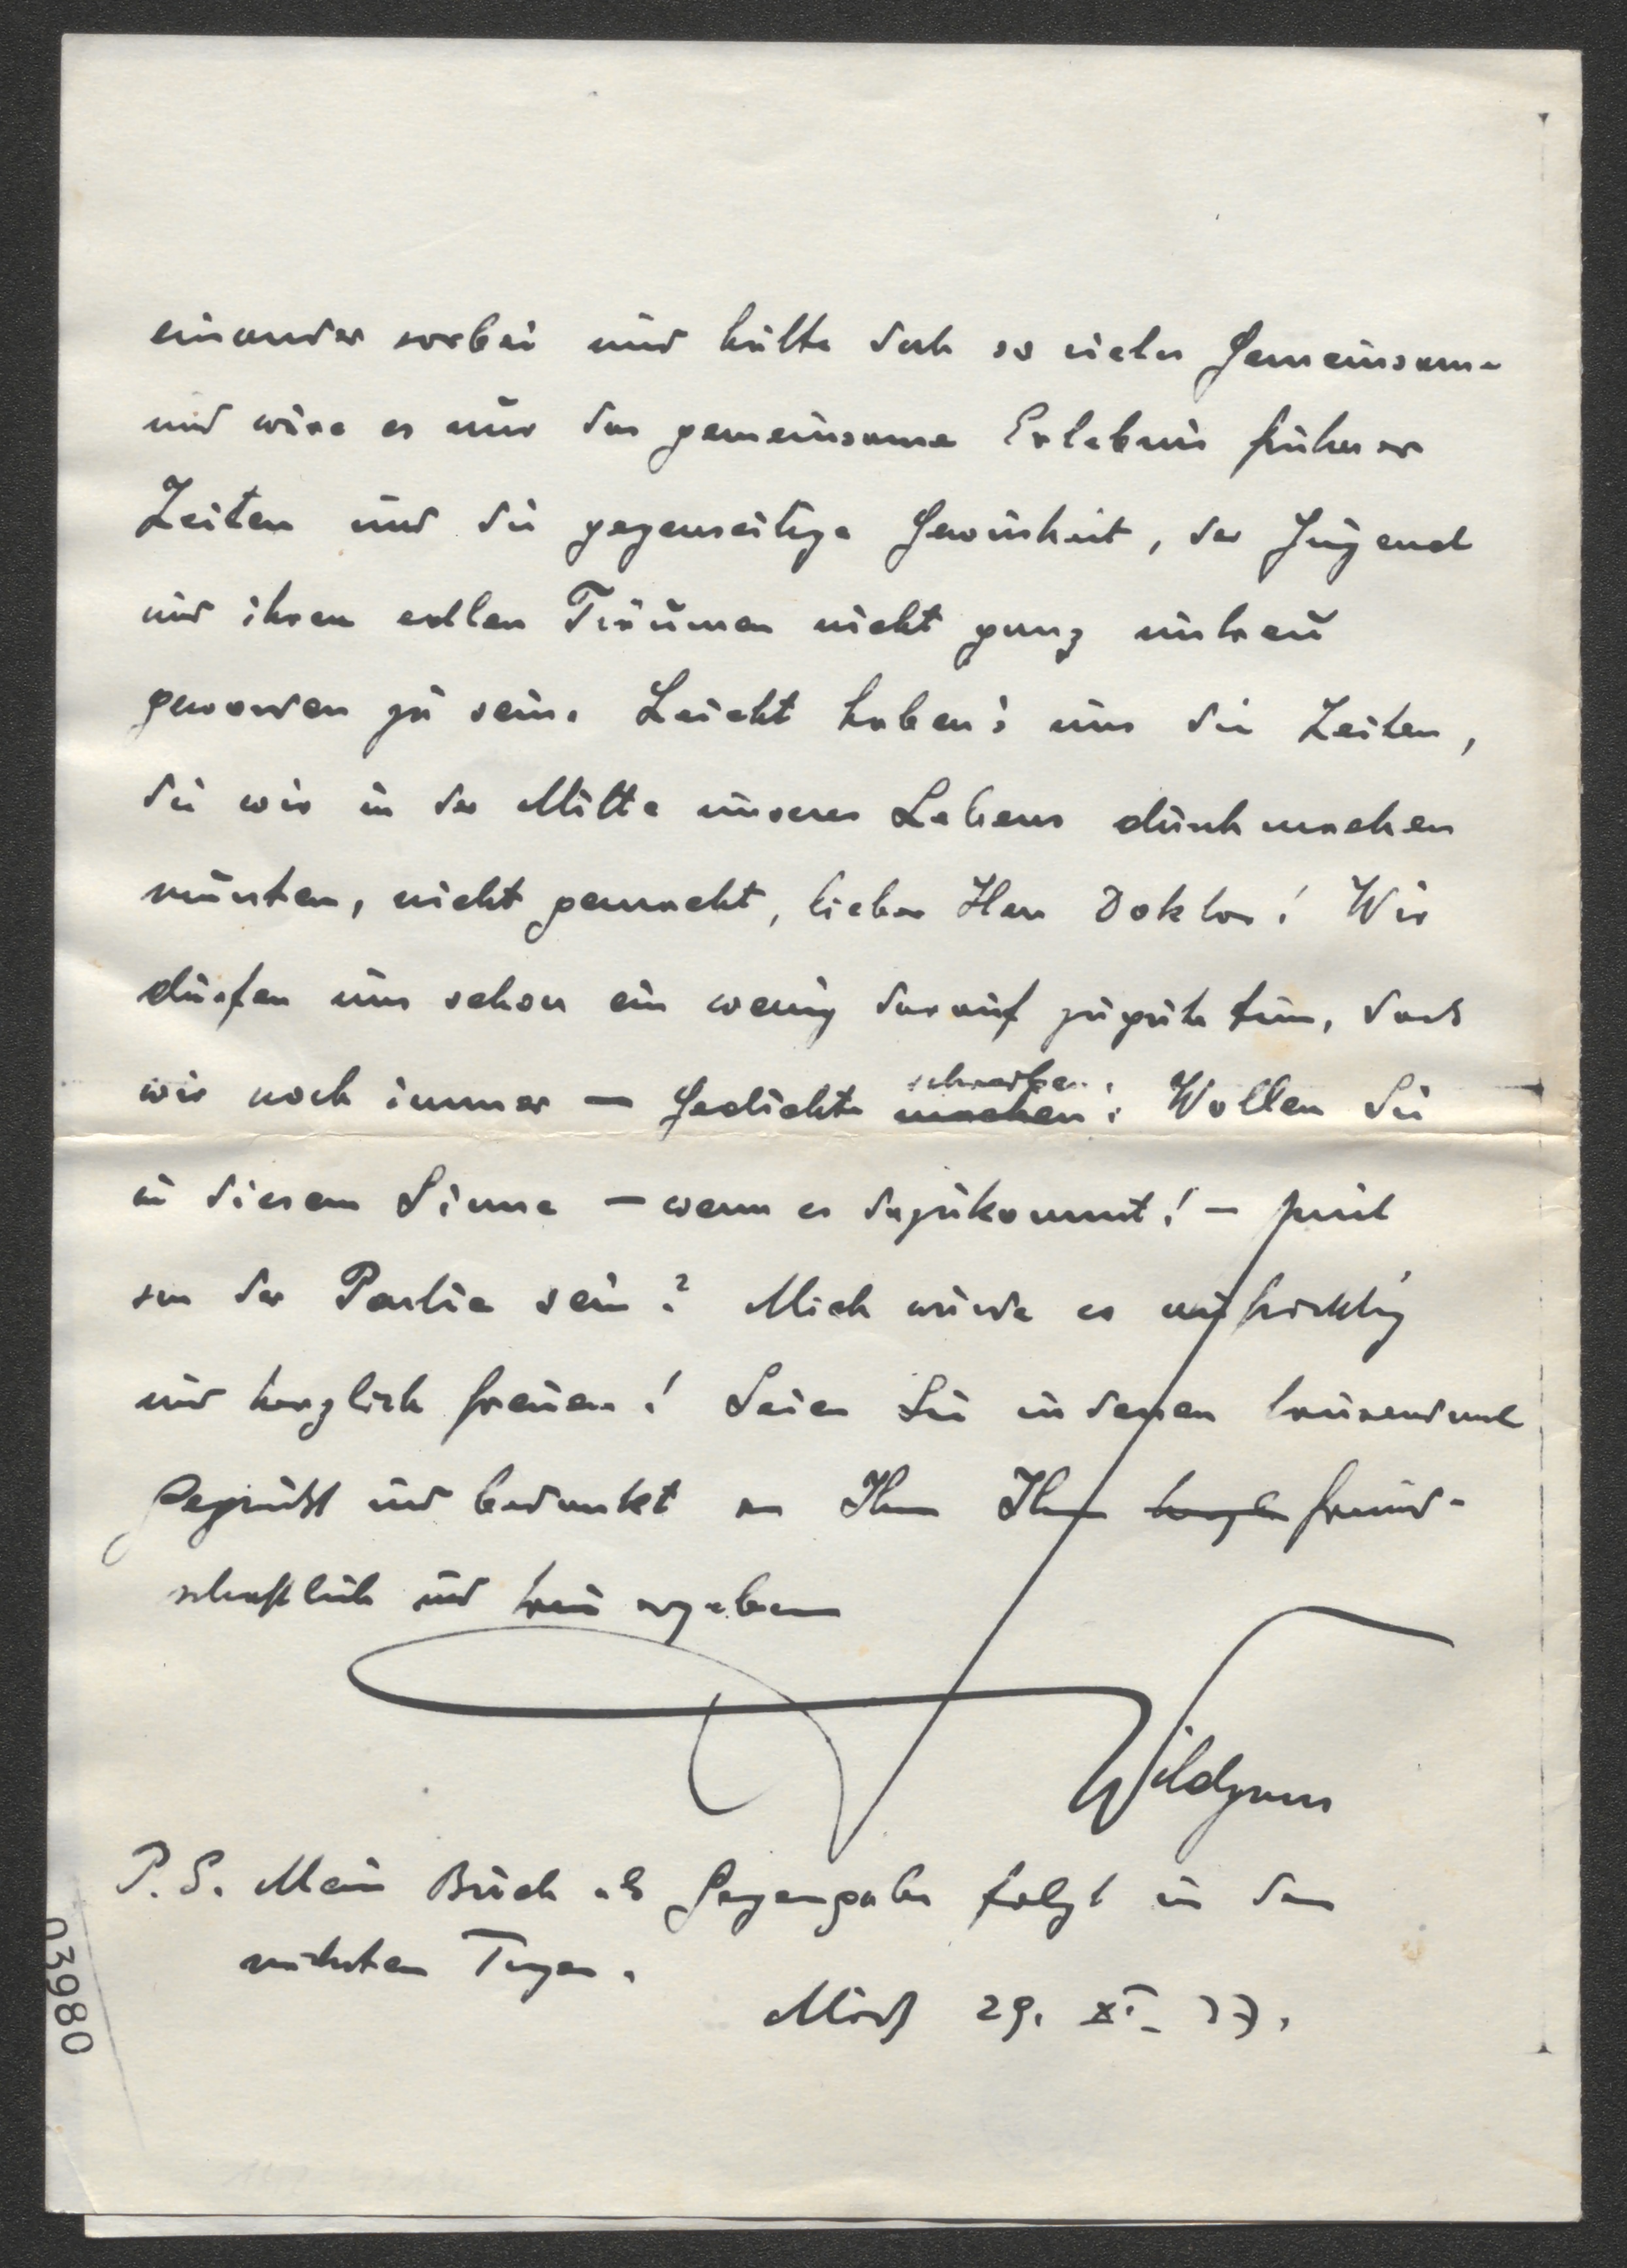 einander vorbei und hätte doch so vieles Gemeinsame
und wäre es nur das gemeinsame Erlebnis früherer
Zeiten und die gegenseitige Gewissheit, der Jugend
und ihren edlen Träumen nicht ganz untreu
geworden zu sein. Leicht haben's uns die Zeiten,
die wir in der Mitte unseres Lebens durchmachen
mussten, nicht gemacht, lieber Herr Doktor! Wir
dürfen uns schon ein wenig darauf zugute tun, dass
wir noch immer — Gedichte machen schreiben. Wollen Sie
in diesem Sinne — wenn es dazukommt! — mit
von der Partie sein? Mich würde es aufrichtig
und herzlich freuen! Seien Sie indessen tausendmal
gegrüsst und bedankt von Ihrem freund-
schaftlich und treu ergebenen
Wildgans
P.S. Mein Buch als Gegengabe folgt in den
nächsten Tagen.
29. XI.
03980